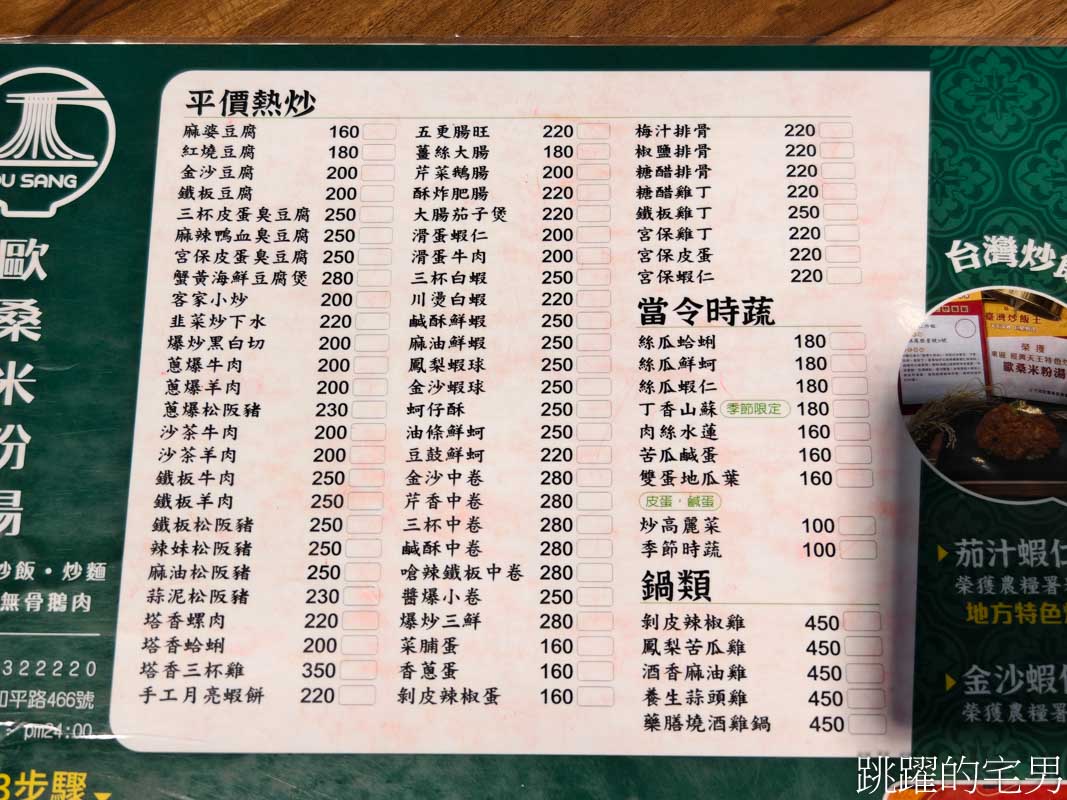 OU SANG
歐桑米粉湯
炒飯・炒麵
無骨鵝肉
322220
和平路466號
pm24:00
3步驟
平價熱炒
麻婆豆腐 160
紅燒豆腐 180
金沙豆腐 200
鐵板豆腐 200
三杯皮蛋臭豆腐 250
麻辣鴨血臭豆腐 250
宮保皮蛋臭豆腐 250
蟹黃海鮮豆腐煲 280
客家小炒 200
韭菜炒下水 220
爆炒黑白切 200
蔥爆牛肉 200
蔥爆羊肉 200
蔥爆松阪豬 230
沙茶牛肉 200
沙茶羊肉 200
鐵板牛肉 250
鐵板羊肉 250
鐵板松阪豬 250
辣妹松阪豬 250
麻油松阪豬 250
蒜泥松阪豬 230
塔香螺肉 220
塔香蛤蜊 220
塔香三杯雞 350
手工月亮蝦餅 220
五更腸旺 220
薑絲大腸 180
芹菜鵝腸 200
酥炸肥腸 220
大腸茄子煲 220
滑蛋蝦仁 200
滑蛋牛肉 200
三杯白蝦 250
川燙白蝦 220
鹹酥鮮蝦 250
麻油鮮蝦 250
鳳梨蝦球 250
金沙蝦球 250
蚵仔酥 250
油條鮮蚵 250
豆鼓鮮蚵 220
金沙中卷 280
芹香中卷 280
三杯中卷 280
鹹酥中卷 280
嗆辣鐵板中卷 280
醬爆小卷 250
爆炒三鮮 280
菜脯蛋 160
香蔥蛋 160
剝皮辣椒蛋 160
梅汁排骨 220
椒鹽排骨 220
糖醋排骨 220
糖醋雞丁 220
鐵板雞丁 250
宮保雞丁 220
宮保皮蛋 220
宮保蝦仁 220
當令時蔬
絲瓜蛤蜊 180
絲瓜鮮蚵 180
絲瓜蝦仁 180
丁香山蘇 季節限定 180
肉絲水蓮 160
苦瓜鹹蛋 160
雙蛋地瓜葉 160
皮蛋，鹹蛋
炒高麗菜 100
季節時蔬 100
鍋類
剝皮辣椒雞 450
鳳梨苦瓜雞 450
酒香麻油雞 450
養生蒜頭雞 450
藥膳燒酒雞鍋 450
台灣炒飯
臺灣炒飯王
榮獲
歐桑米粉湯
茄汁蝦仁
榮獲農糧署
地方特色
金沙蝦仁
榮獲農糧署
跳躍的宅男